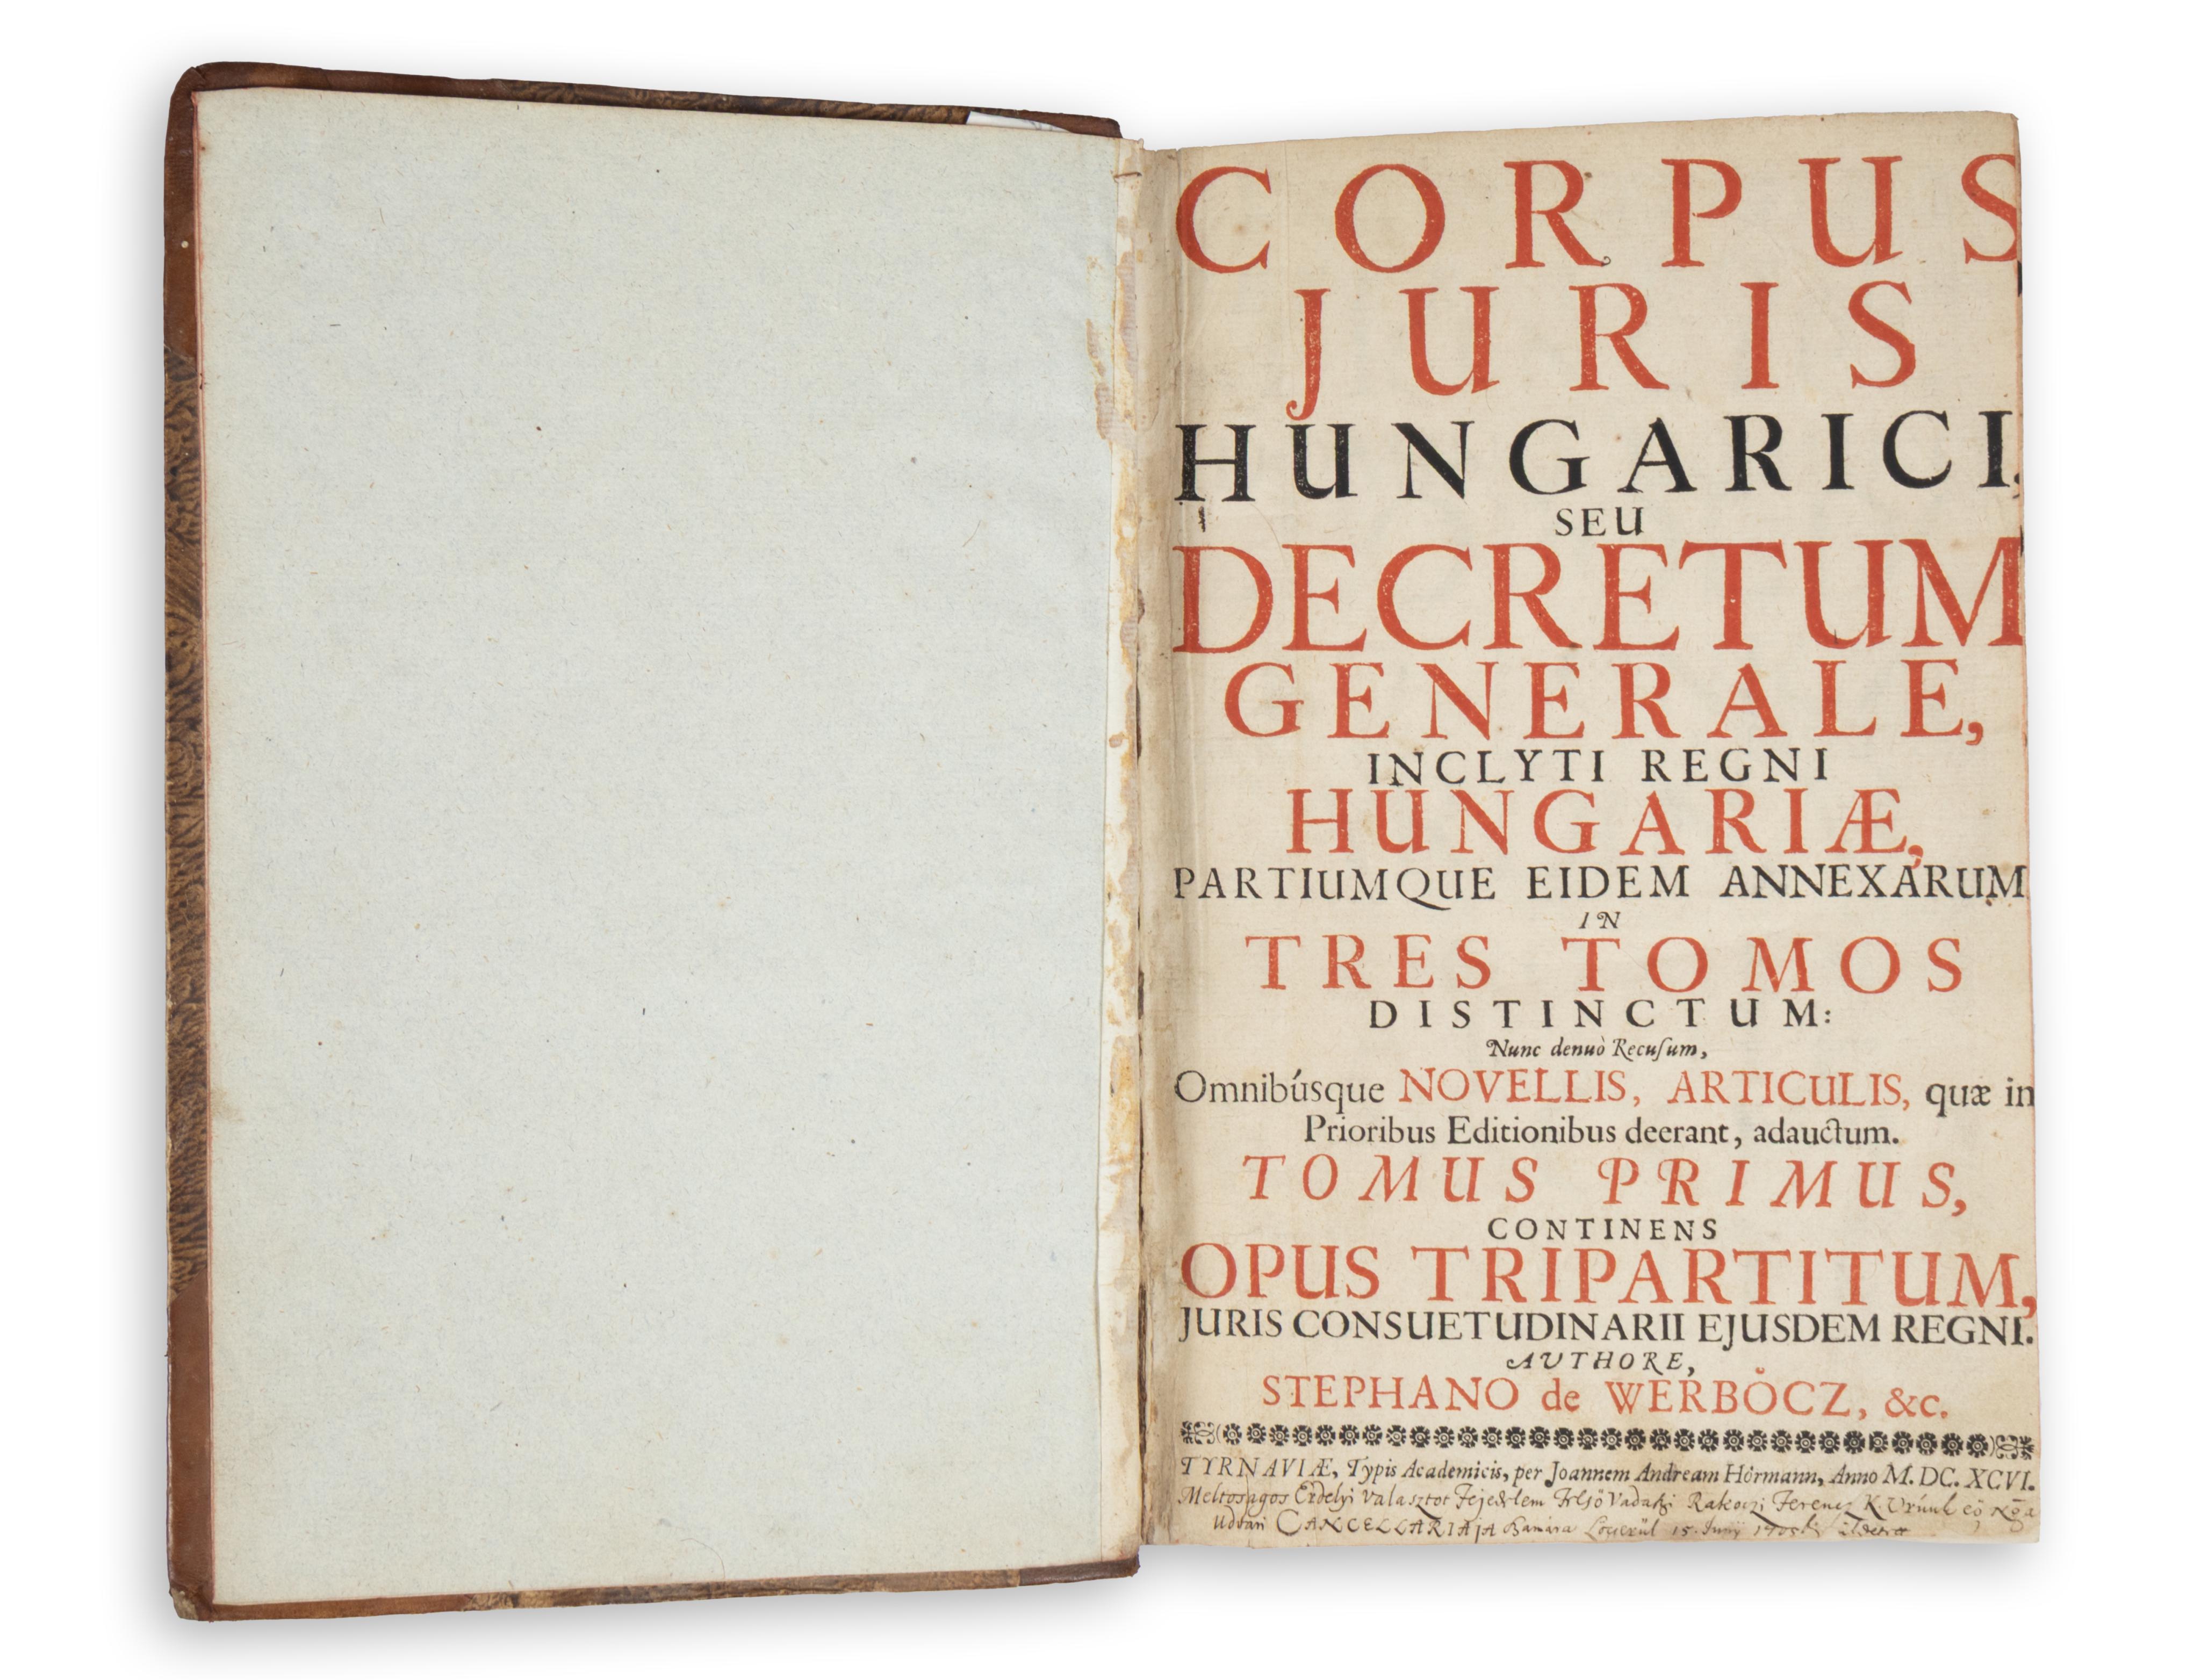 CORPUS
JURIS
HUNGARICI,
SEU
DECRETUM
GENERALE,
INCLYTI REGNI
HUNGARIÆ,
PARTIUMQUE EIDEM ANNEXARUM
IN
TRES TOMOS
DISTINCTUM:
Nunc denuò Recuſum,
Omnibúsque NOVELLIS, ARTICULIS, quæ in
Prioribus Editionibus deerant, adauctum.
TOMUS PRIMUS,
CONTINENS
OPUS TRIPARTITUM,
JURIS CONSUETUDINARII EJUSDEM REGNI.
AUTHORE,
STEPHANO de WERBÖCZ, &c.
TYRNAVIÆ, Typis Academicis, per Joannem Andream Hörmann, Anno M. DC. XCVI.
Meltosagos Erdelyi valasztot Fejedelem Felsö Vadaszi Rakoczi Ferencz K. Urúnk eö Nga
Udvari CANCELLARIAJA 15. Junÿ